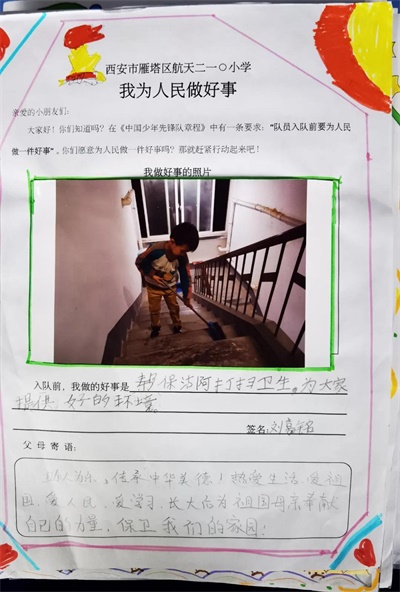 西安市雁塔区航天二一〇小学
我为人民做好事
亲爱的小朋友们：
大家好！你们知道吗？在《中国少年先锋队章程》中有一条要求：“队员入队前要为人民
做一件好事”。你们愿意为人民做一件好事吗？那就赶紧行动起来吧！
我做好事的照片
入队前，我做的好事是 帮保洁阿打扫卫生。为大家
提供 好的环境
签名：刘
父母寄语：
助人为乐，传承中华美德！热爱生活、爱祖
国、爱人民、爱学习，长大后为祖国母亲奉献
自己的力量，保卫我们的家园！